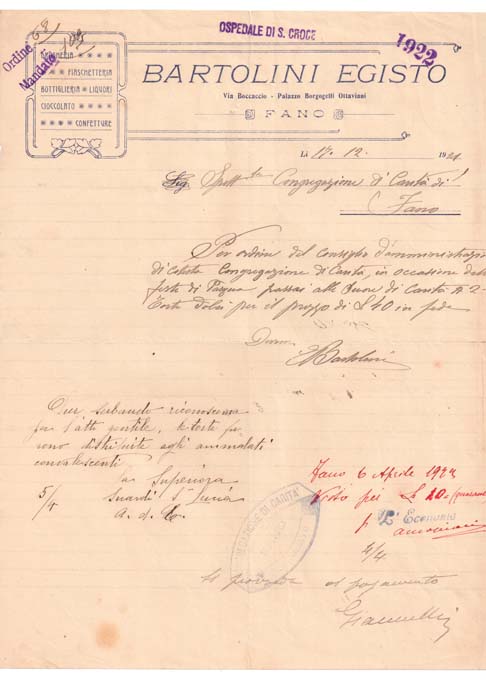 OSPEDALE DI S. CROCE
1922
Ordine 68
Mandato
DROGHERIA
FIASCHETTERIA
BOTTIGLIERIA LIQUORI
CIOCCOLATO
CONFETTURE
BARTOLINI EGISTO
Via Boccaccio - Palazzo Borgogelli Ottaviani
FANO
Lì 17. 12. 1921
Sig. Spett.le Congregazione di Carità di
Fano
Per ordine del consiglio d'amministrazione
di codesta Congregazione di Carità, in occasione delle
feste di Pasqua passai alle Suore di Carità N 2
Torte Dolci per il prezzo di £ 40 in fede
E Bartolini
Pur serbando riconoscenza
per l'atto gentile, le torte fu
rono distribuite agli ammalati
convalescenti
la Superiora
5/4 Suardi S. Lucia
a. d. C.
CONGREGAZIONE DI CARITÀ
Fano 6 Aprile 1922
Visto per £
p L'Economo
4/4
Si provveda al pagamento
Giannelli